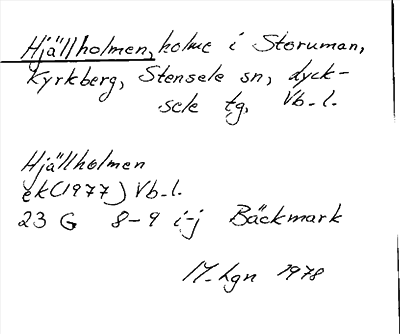 Hjällholmen, holme i Storuman,
Kyrkberg, Stensele sn, Lyck-
sele tg, Vb. l.
Hjällholmen
ek (1977) Vb. l.
23 G 8-9 i-j Bäckmark
M-Lgn 1978